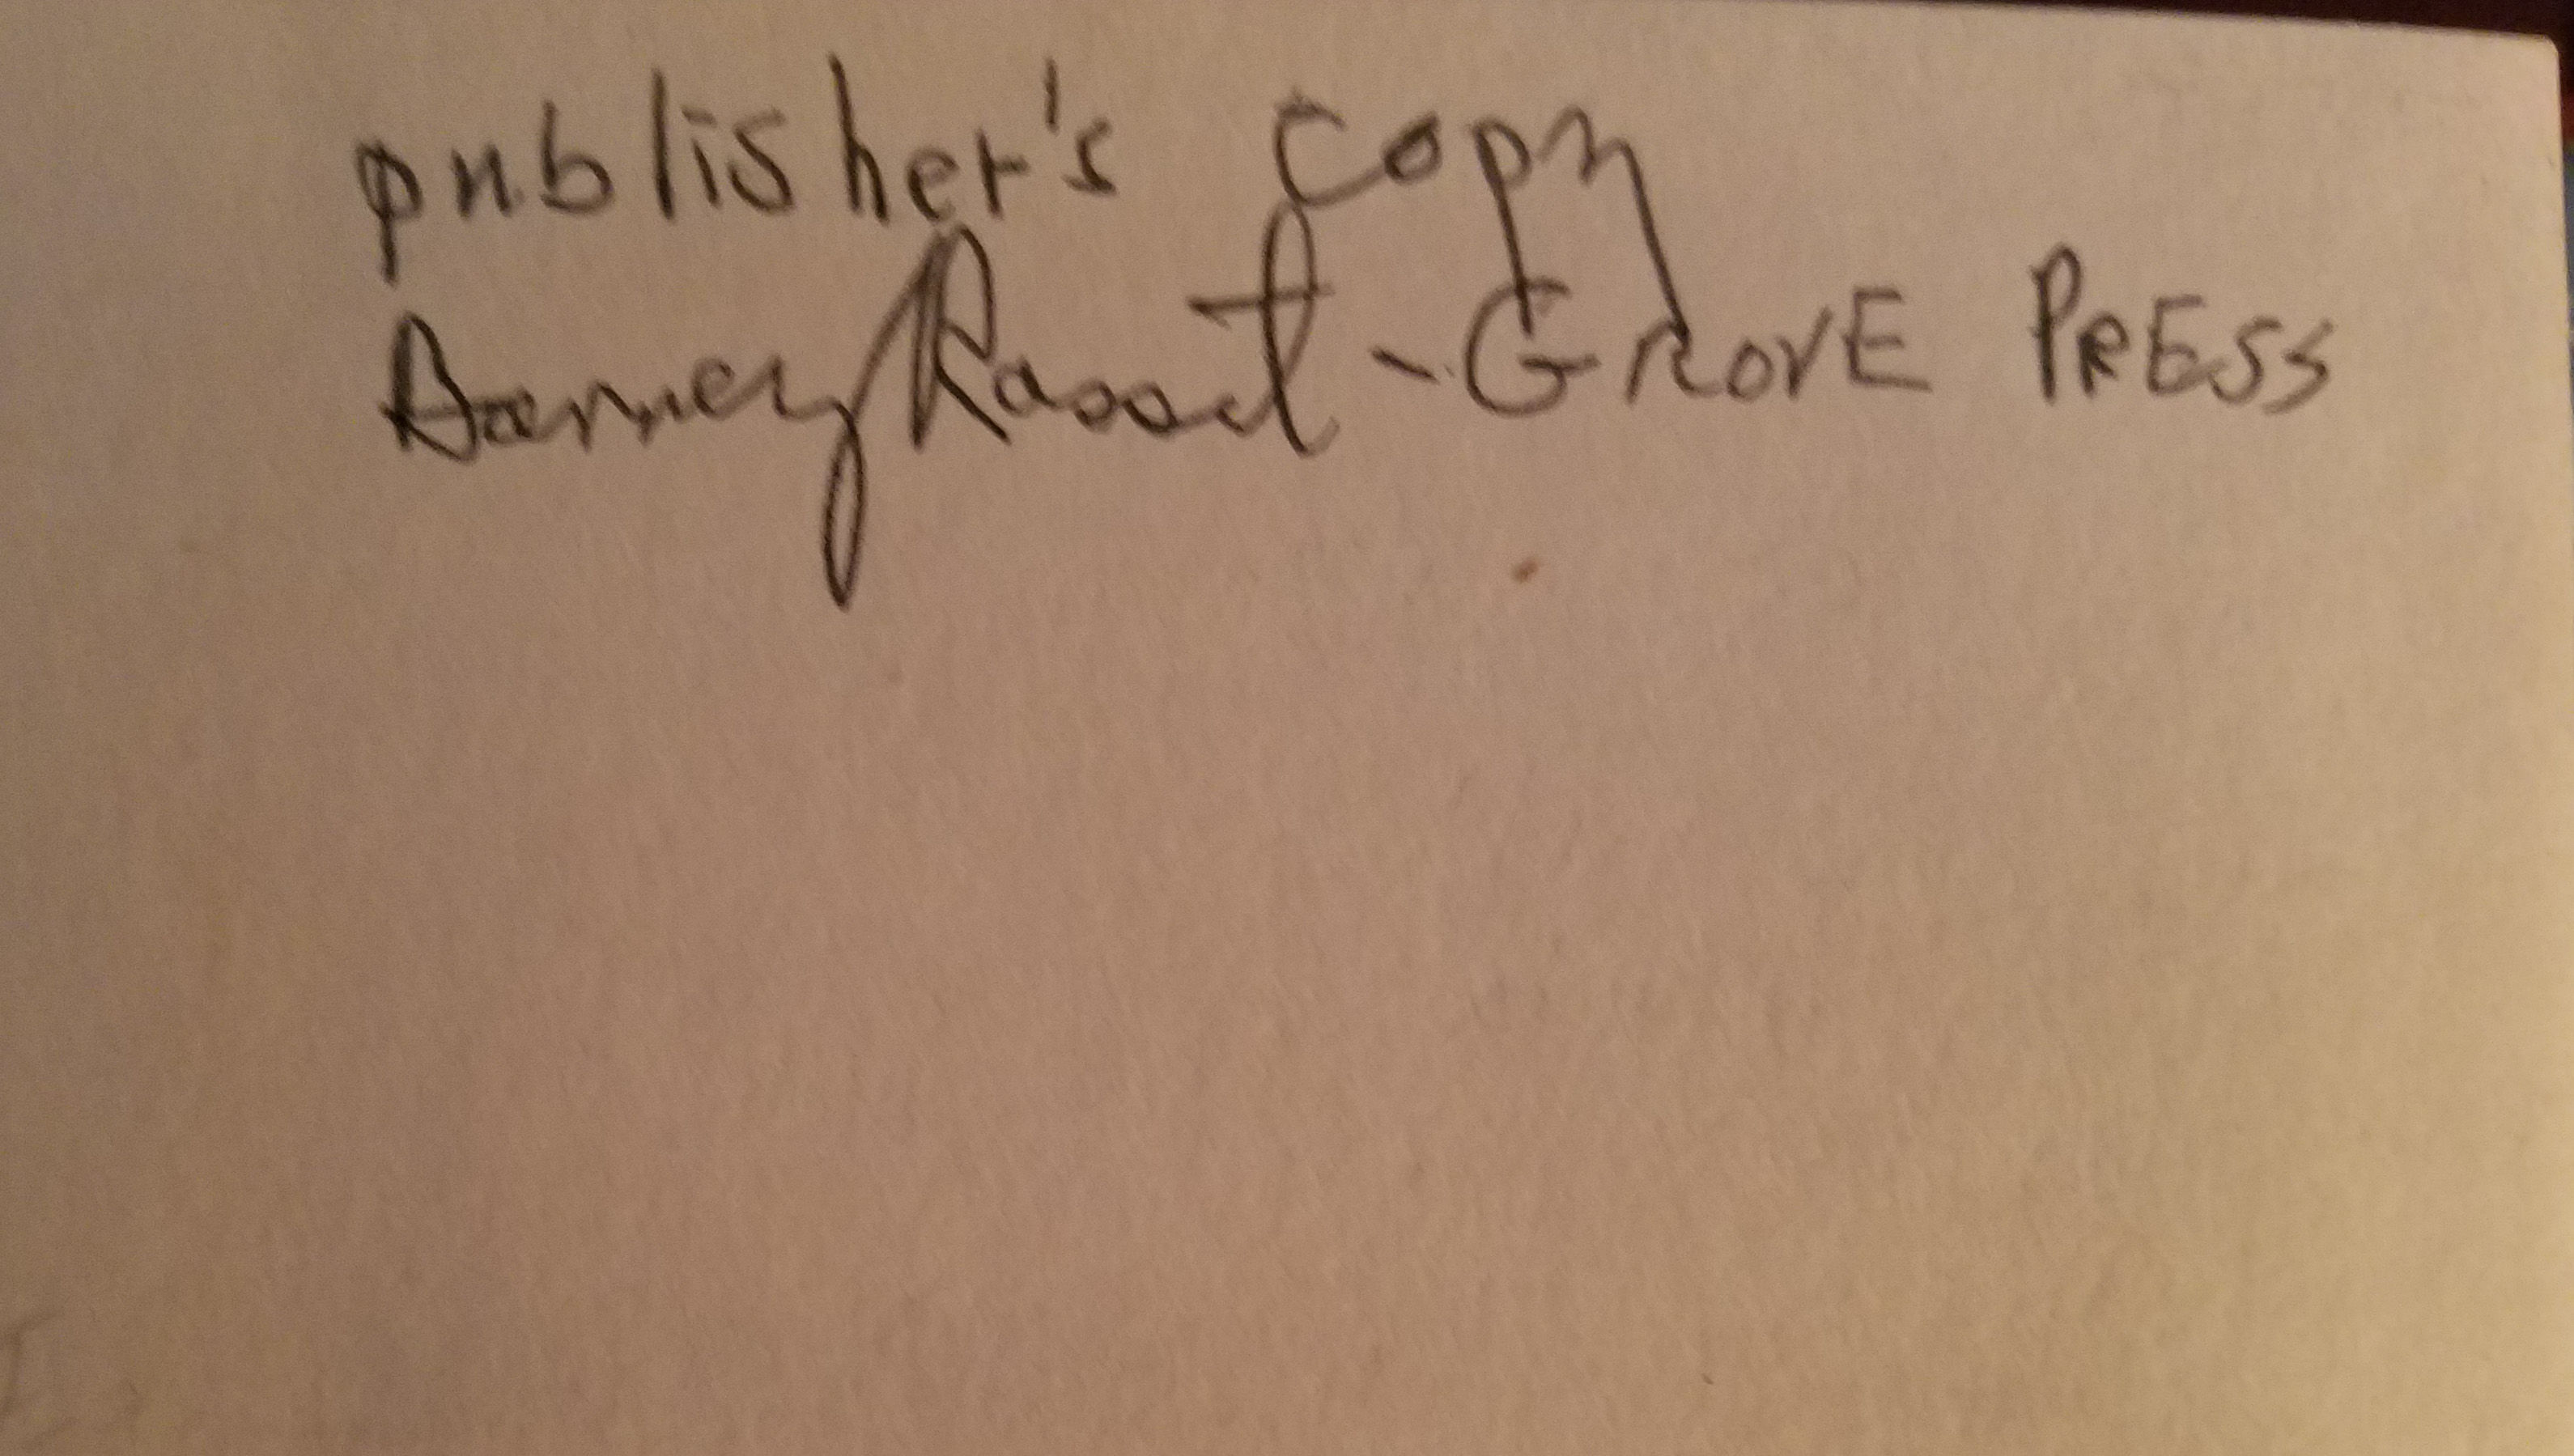 publisher's copy
Barney Rosset - GROVE PRESS